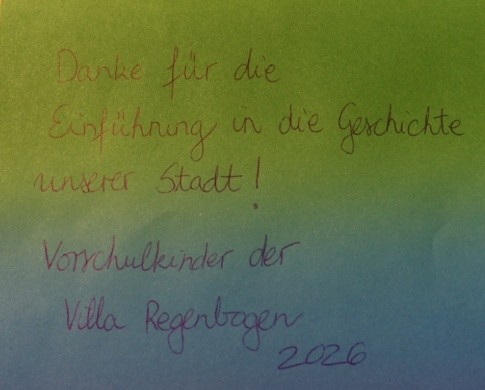 Danke für die
Einführung in die Geschichte
unserer Stadt!
Vorschulkinder der
Villa Regenbogen
2026